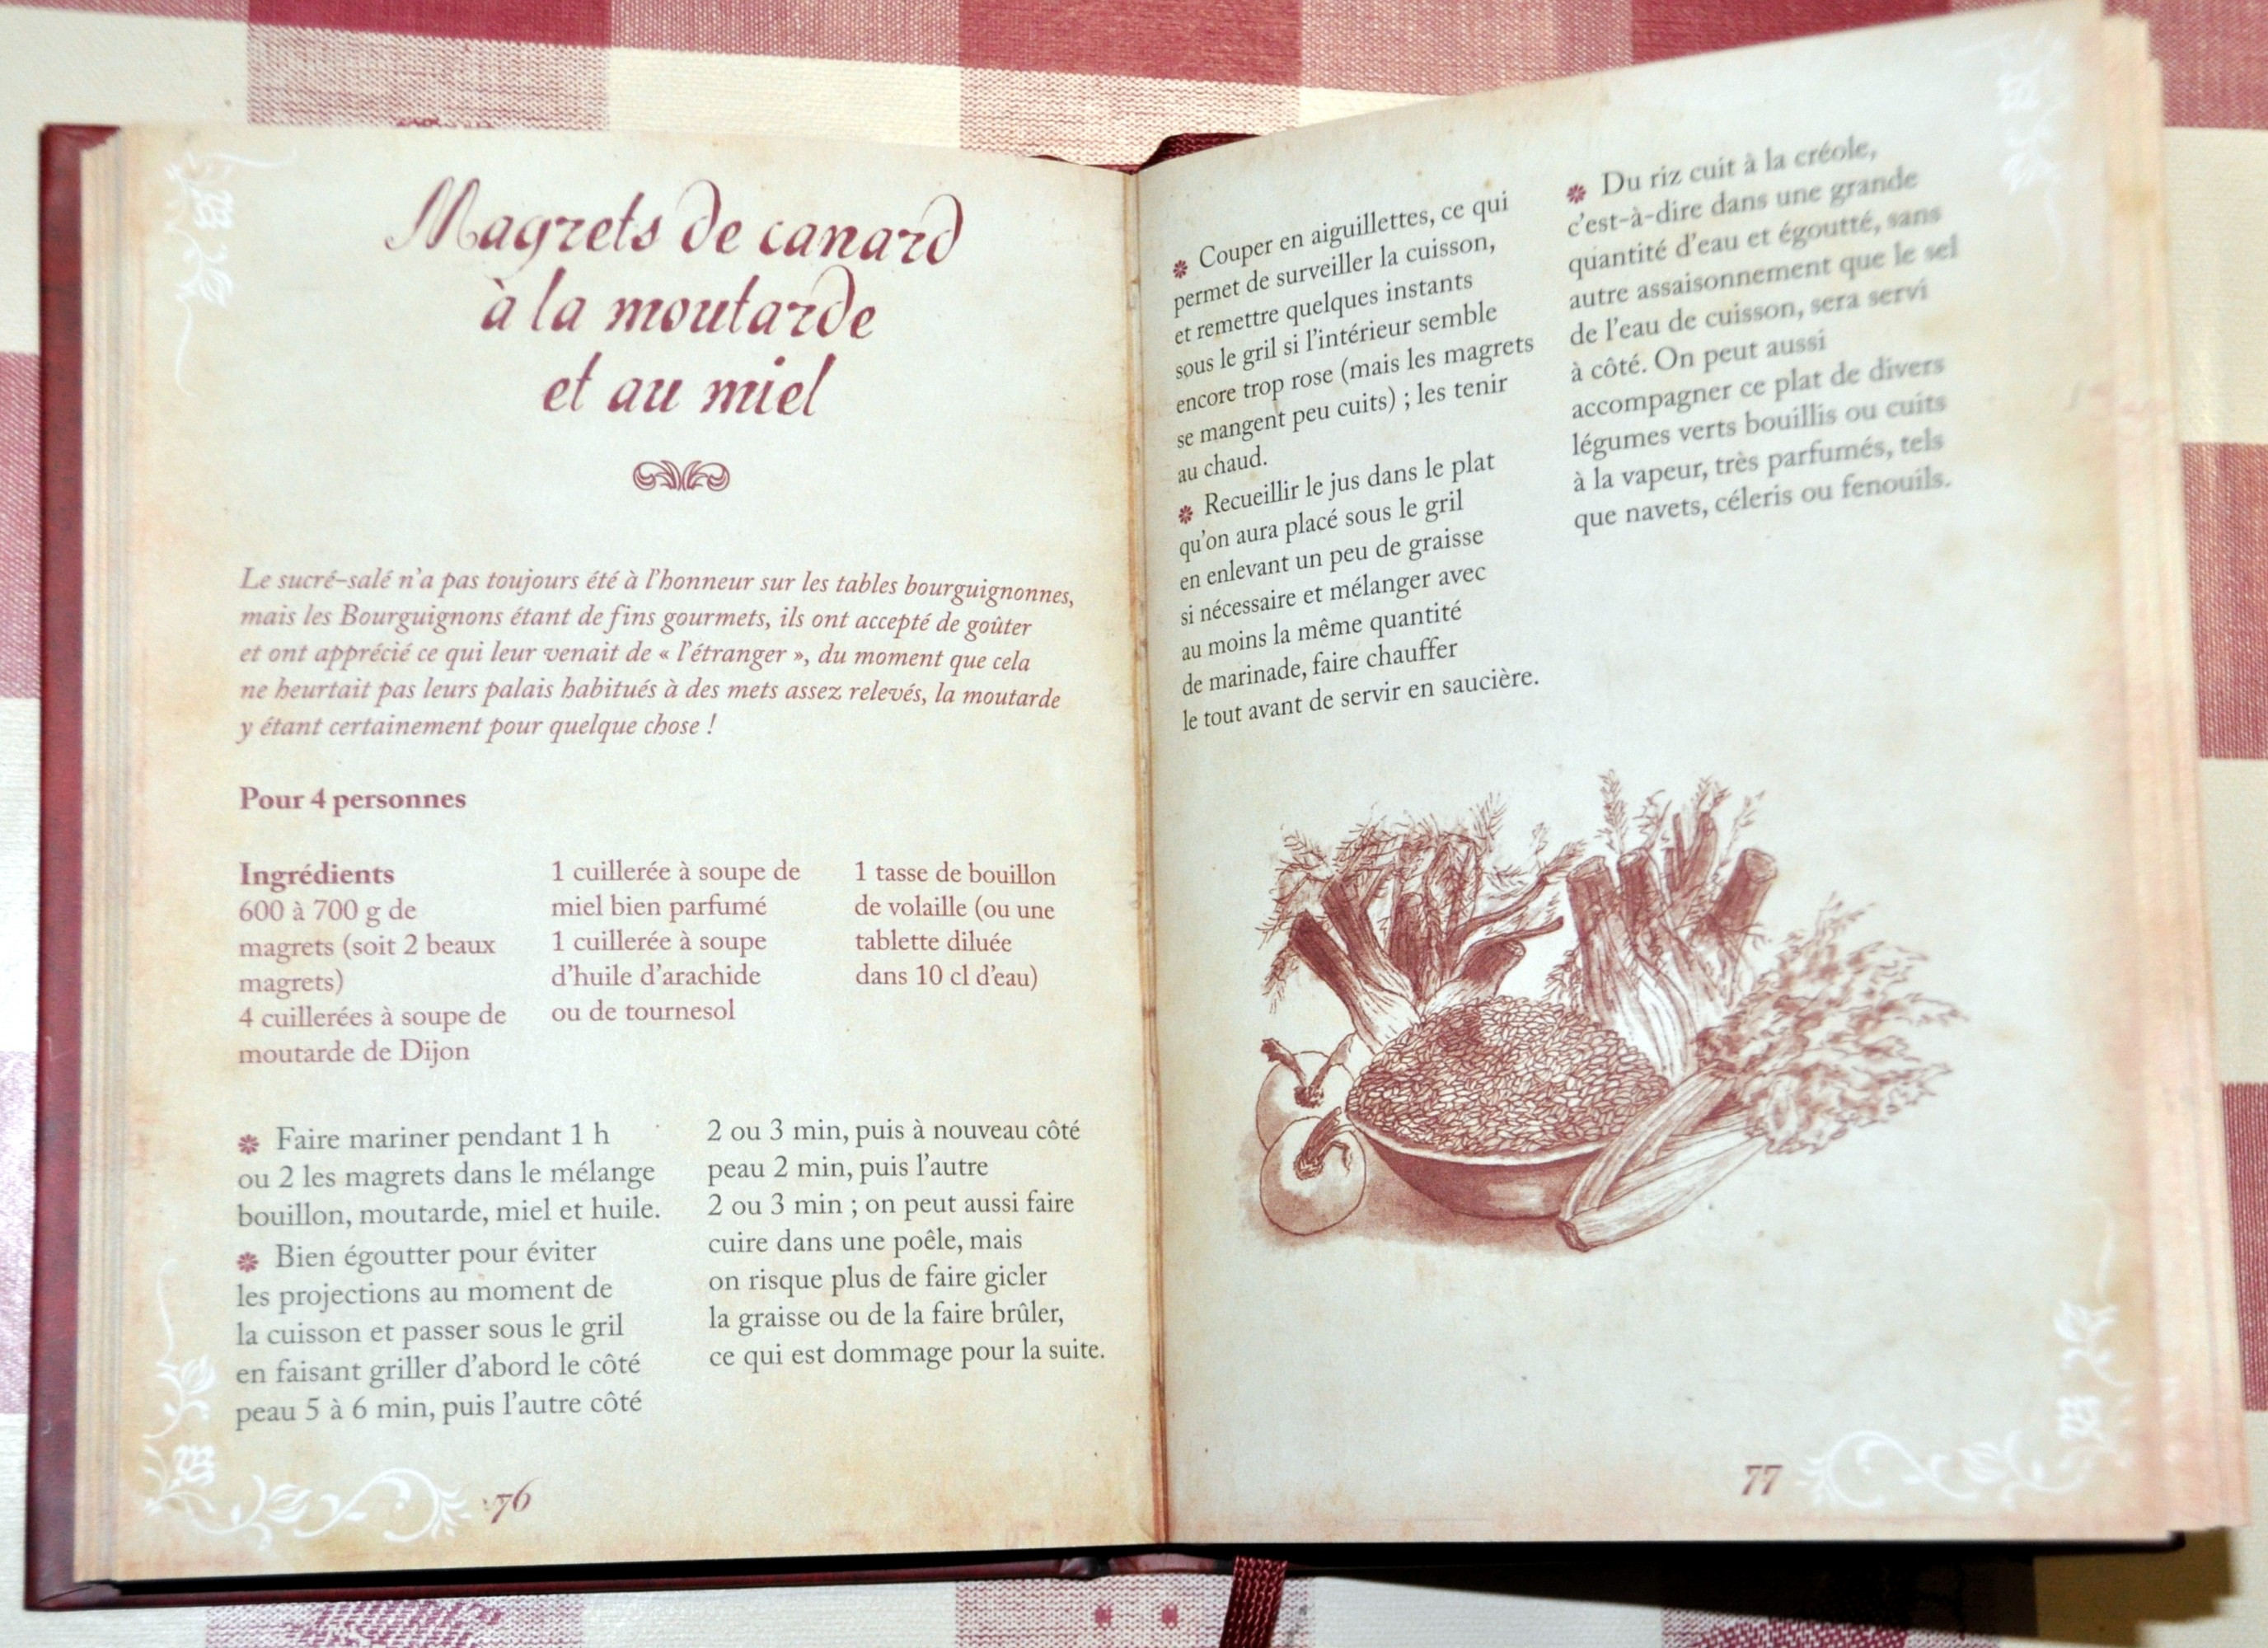 Magrets de canard
à la moutarde
et au miel
Le sucré-salé n'a pas toujours été à l'honneur sur les tables bourguignonnes,
mais les Bourguignons étant de fins gourmets, ils ont accepté de goûter
et ont apprécié ce qui leur venait de « l'étranger », du moment que cela
ne heurtait pas leurs palais habitués à des mets assez relevés, la moutarde
y étant certainement pour quelque chose !
Pour 4 personnes
Ingrédients
600 à 700 g de
magrets (soit 2 beaux
magrets)
4 cuillerées à soupe de
moutarde de Dijon
1 cuillerée à soupe de
miel bien parfumé
1 cuillerée à soupe
d'huile d'arachide
ou de tournesol
1 tasse de bouillon
de volaille (ou une
tablette diluée
dans 10 cl d'eau)
Faire mariner pendant 1 h
ou 2 les magrets dans le mélange
bouillon, moutarde, miel et huile.
Bien égoutter pour éviter
les projections au moment de
la cuisson et passer sous le gril
en faisant griller d'abord le côté
peau 5 à 6 min, puis l'autre côté
2 ou 3 min, puis à nouveau côté
peau 2 min, puis l'autre
2 ou 3 min ; on peut aussi faire
cuire dans une poêle, mais
on risque plus de faire gicler
la graisse ou de la faire brûler,
ce qui est dommage pour la suite.
76
Couper en aiguillettes, ce qui
permet de surveiller la cuisson,
et remettre quelques instants
sous le gril si l'intérieur semble
encore trop rose (mais les magrets
se mangent peu cuits) ; les tenir
au chaud.
Recueillir le jus dans le plat
qu'on aura placé sous le gril
en enlevant un peu de graisse
si nécessaire et mélanger avec
au moins la même quantité
de marinade, faire chauffer
le tout avant de servir en saucière.
Du riz cuit à la créole,
c'est-à-dire dans une grande
quantité d'eau et égoutté, sans
autre assaisonnement que le sel
de l'eau de cuisson, sera servi
à côté. On peut aussi
accompagner ce plat de divers
légumes verts bouillis ou cuits
à la vapeur, très parfumés, tels
que navets, céleris ou fenouils.
77